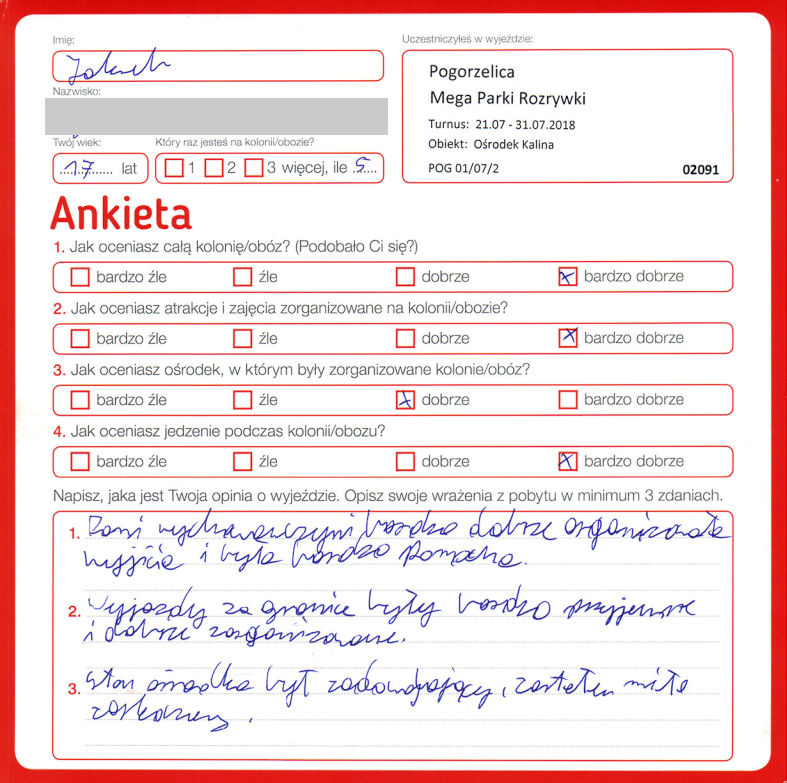 Imię:
Jakub
Nazwisko:
Twój wiek:
17 lat
Który raz jesteś na kolonii/obozie?
1 2 3 więcej, ile 5
Uczestniczyłeś w wyjeździe:
Pogorzelica
Mega Parki Rozrywki
Turnus: 21.07 - 31.07.2018
Obiekt: Ośrodek Kalina
POG 01/07/2 02091
Ankieta
1. Jak oceniasz całą kolonię/obóz? (Podobało Ci się?)
bardzo źle źle dobrze x bardzo dobrze
2. Jak oceniasz atrakcje i zajęcia zorganizowane na kolonii/obozie?
bardzo źle źle dobrze x bardzo dobrze
3. Jak oceniasz ośrodek, w którym były zorganizowane kolonie/obóz?
bardzo źle źle x dobrze bardzo dobrze
4. Jak oceniasz jedzenie podczas kolonii/obozu?
bardzo źle źle dobrze x bardzo dobrze
Napisz, jaka jest Twoja opinia o wyjeździe. Opisz swoje wrażenia z pobytu w minimum 3 zdaniach.
1. Pani wychowawczyni bardzo dobrze organizowała
wyjścia i była bardzo pomocna.
2. Wyjazdy za granicę były bardzo przyjemne
i dobrze zorganizowane.
3. Stan ośrodka był zadowalający, zostałem miło
zaskoczony.